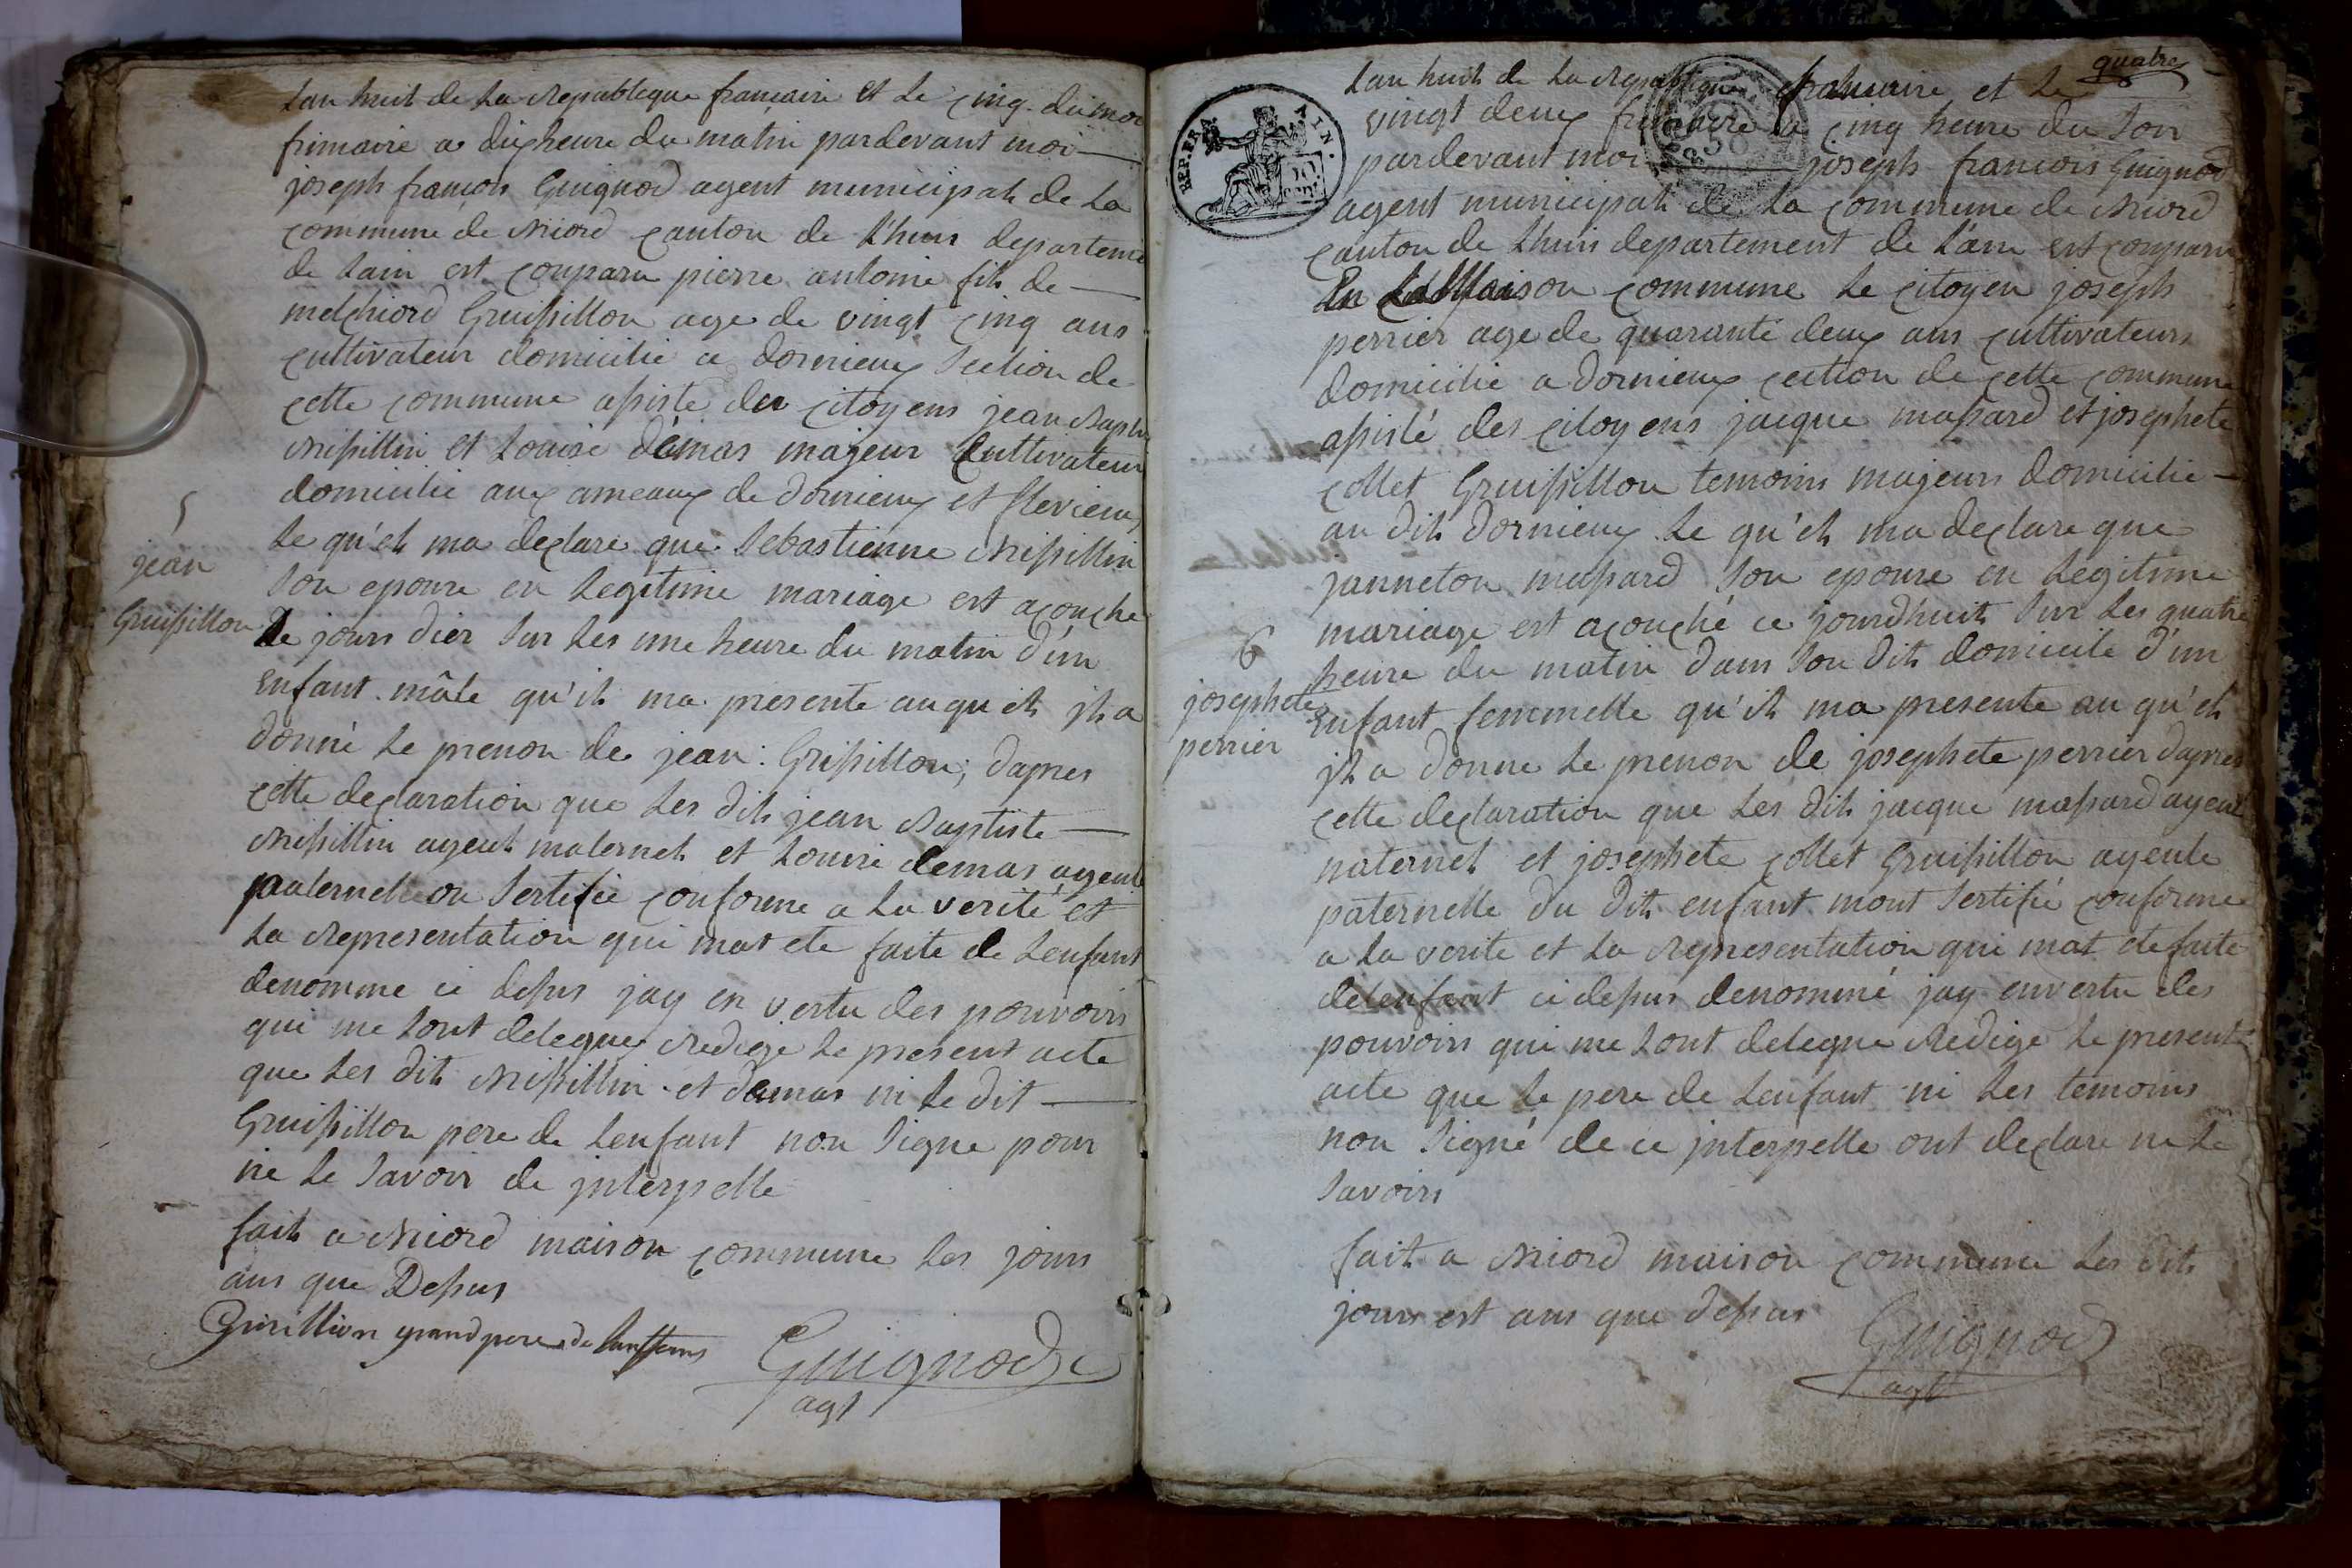 Lan huit de La Republeque francaise et Le cinq du moi
frimaire a dix heure du matin pardevant moi —
joseph francois Guignod agent municipal de La
commune de Niord canton de Lhuis departeme
de Lain est conparu pierre antoine fils de —
melchiord Gruissillon age de vingt cinq ans
cultivateur domicilie a dornieux Section de
cette commune assiste des citoyens jean Baptis
Nissillin et Louise démas majeur Cultivateur
domicilie aux ameaux de dornieux et flevieux
Le qu'el ma declare que Sebastienne Nissillin
Son epouse en Legitime mariage est acouche
Le jours dier Sur Les une heure du matin d'un
Enfant mâle qu'il ma presente auquel jl a
donné Le prenon de jean : Grissillon; dapres
cette declaration que Les dits jean Baptiste —
Nissillin ayeul maternel et Louise demas ayeule
paternelle on Sertifie conforme a La verité et
La Representation qui mat ete faite de Lenfant
denomme ci dessus jay en vertu des pouvoirs
qui me Sont delegues Redige Le present acte
que Les dits Nissillin et damas ni Le dit —
Gruissillon pere de Lenfant non Signe pour
ne Le Savoir de jnterpelle
fait a Niord maison commune Les jours
ans que Dessus
grand pere de
Guignod
agt
5
jean
Gruissillon
quatre
REP. FRA.
AIN.
Lan huit de La Republique francaise et Le
vingt deux frimaire a cinq heure du Soir
pardevant moi — joseph francois Guignod
agent municipal de La commune de Niord
canton de Lhuis departement de Lain est conparu
En La Maison commune Le citoyen joseph
perrier age de quarante deux ans cultivateurs
domicilie a dornieux cection de cette commune
assisté des citoyens jacque massard et josephete
collet Gruissillon temoins majeurs domicilie —
au dit dornieux Le qu'el ma declare que
janneton massard Son epouse en Legitime
mariage est acouché ce jourdhuit Sur Les quatre
heure du matin dans Son dit domicile d'un
Enfant femmelle qu'il ma presente au qu'el
jl a donne Le prenon de josephete perrier dapres
cette declaration que Les dits jacque massard ayeul
maternel et josephete collet Gruissillon ayeule
paternelle du dit enfant mont Sertifié conforme
a La verite et La Representation qui mat ete faite
de Lenfant ci dessus denommé jay en vertu des
pouvoirs qui me Sont delegue Redige Le present
acte que Le pere de Lenfant ni Les temoins
non Signé de ce jnterpelle ont declare ne Le
Savoirs
fait a Niord maison commune Les dits
jours est ans que dessus
Guignod
agt
6
josephete
perrier